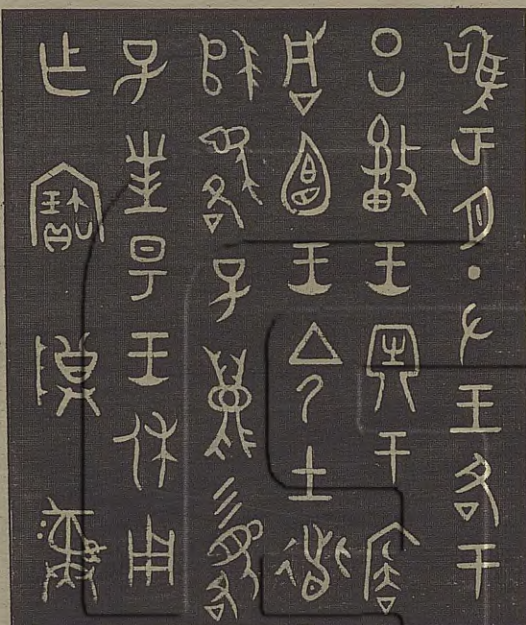 唯正月丁丑王各于
呂王牢于
咸宜王令士道
歸貉子鹿三貉
子對揚王休用
作寶尊彝